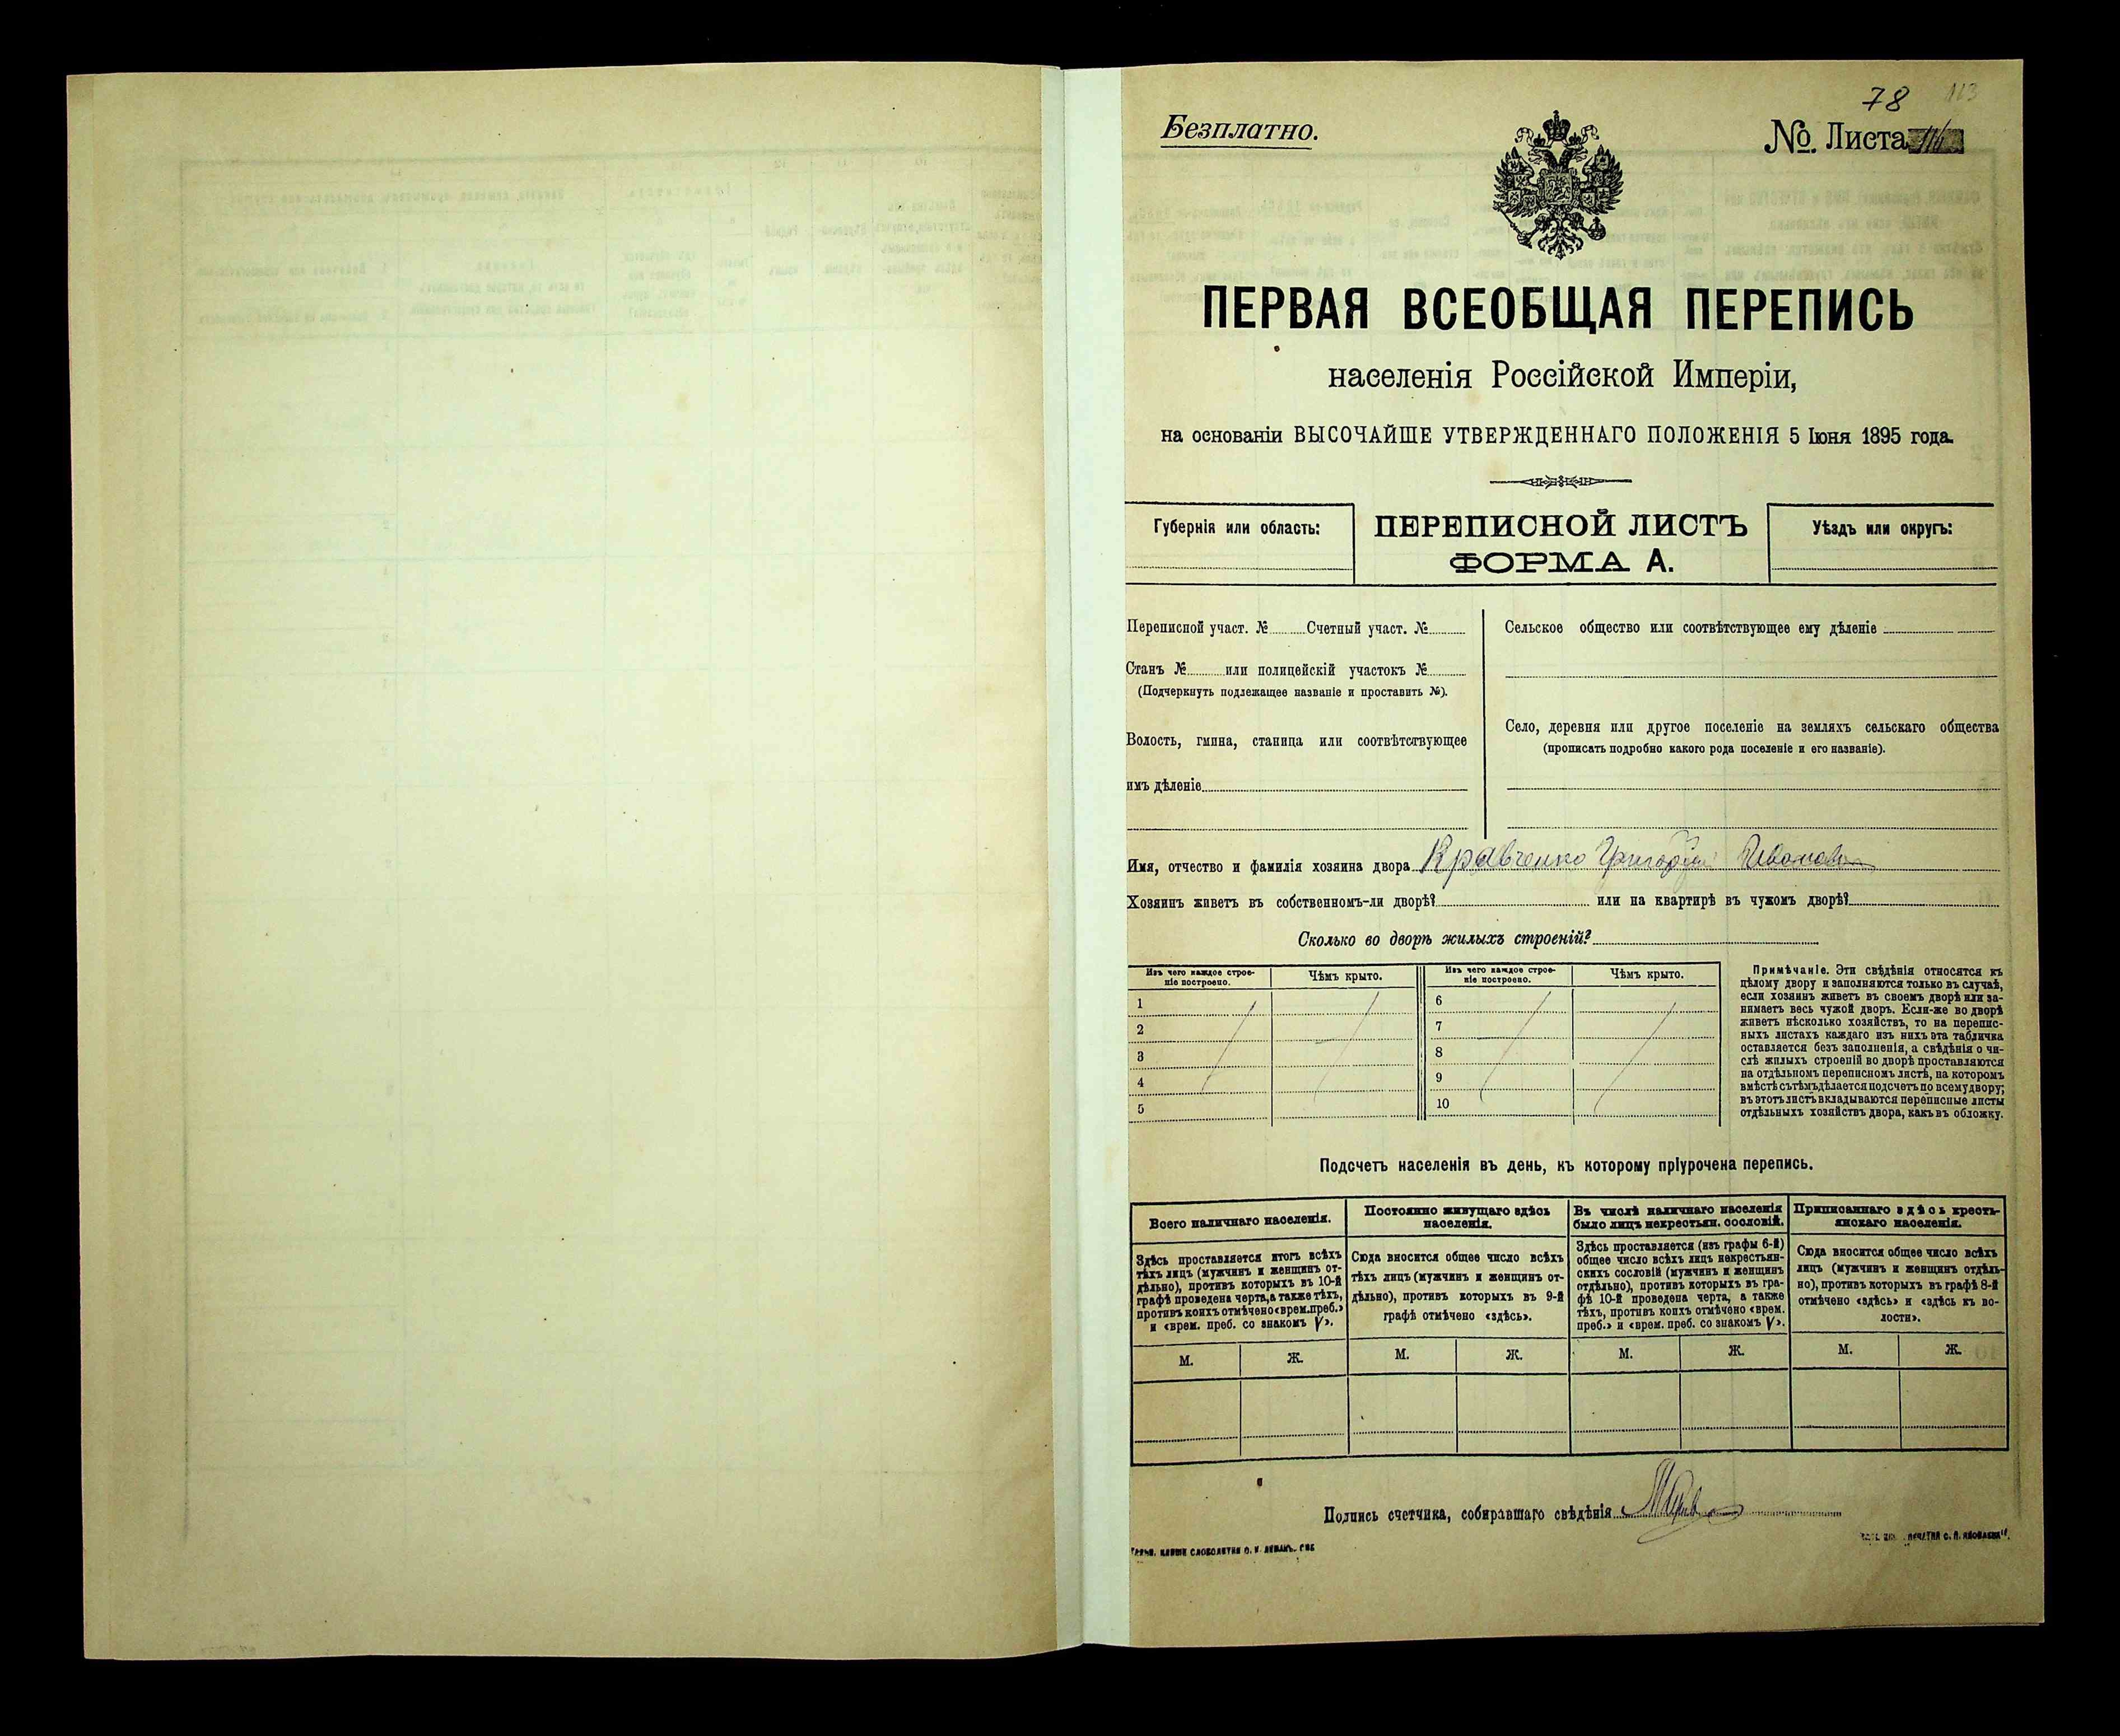 78 113
Безплатно.
№. Листа
ПЕРВАЯ ВСЕОБЩАЯ ПЕРЕПИСЬ
населенія Россійской Имперіи,
на основаніи ВЫСОЧАЙШЕ УТВЕРЖДЕННАГО ПОЛОЖЕНІЯ 5 Іюня 1895 года.
Губернія или область:
ПЕРЕПИСНОЙ ЛИСТЪ
ФОРМА А.
Уѣздъ или округъ:
Переписной участ. № Счетный участ. №
Станъ № или полицейскій участокъ №
(Подчеркнуть подлежащее названіе и проставить №).
Волость, гмина, станица или соотвѣтствующее
имъ дѣленіе
Сельское общество или соотвѣтствующее ему дѣленіе
Село, деревня или другое поселеніе на земляхъ сельскаго общества
(прописать подробно какого рода поселеніе и его названіе).
Имя, отчество и фамилія хозяина двора Кравченко Григорій Ивановъ
Хозяинъ живетъ въ собственномъ-ли дворѣ? или на квартирѣ въ чужомъ дворѣ?
Сколько во дворѣ жилыхъ строеній?
Изъ чего каждое строе-
ніе построено.
Чѣмъ крыто.
1
2
3
4
5
Изъ чего каждое строе-
ніе построено.
Чѣмъ крыто.
6
7
8
9
10
Примѣчаніе. Эти свѣдѣнія относятся къ
цѣлому двору и заполняются только въ случаѣ,
если хозяинъ живетъ въ своемъ дворѣ или за-
нимаетъ весь чужой дворъ. Если-же во дворѣ
живетъ нѣсколько хозяйствъ, то на перепис-
ныхъ листахъ каждаго изъ нихъ эта табличка
оставляется безъ заполненія, а свѣдѣнія о чи-
слѣ жилыхъ строеній во дворѣ проставляются
на отдѣльномъ переписномъ листѣ, на которомъ
вмѣстѣ съ тѣмъ дѣлается подсчетъ по всему двору;
въ этотъ листъ вкладываются переписные листы
отдѣльныхъ хозяйствъ двора, какъ въ обложку.
Подсчетъ населенія въ день, къ которому пріурочена перепись.
Всего наличнаго населенія.
Здѣсь проставляется итогъ всѣхъ
тѣхъ лицъ (мужчинъ и женщинъ от-
дѣльно), противъ которыхъ въ 10-й
графѣ проведена черта, а также тѣхъ,
противъ коихъ отмѣчено «врем. преб.»
и «врем. преб. со знакомъ V».
М. Ж.
Постоянно живущаго здѣсь
населенія.
Сюда вносится общее число всѣхъ
тѣхъ лицъ (мужчинъ и женщинъ от-
дѣльно), противъ которыхъ въ 9-й
графѣ отмѣчено «здѣсь».
М. Ж.
Въ числѣ наличнаго населенія
было лицъ некрестьян. сословій.
Здѣсь проставляется (изъ графы 6-й)
общее число всѣхъ лицъ некрестьян-
скихъ сословій (мужчинъ и женщинъ
отдѣльно), противъ которыхъ въ гра-
фѣ 10-й проведена черта, а также
тѣхъ, противъ коихъ отмѣчено «врем.
преб.» и «врем. преб. со знакомъ V».
М. Ж.
Приписаннаго здѣсь кресть-
янскаго населенія.
Сюда вносится общее число всѣхъ
лицъ (мужчинъ и женщинъ отдѣль-
но), противъ которыхъ въ графѣ 8-й
отмѣчено «здѣсь» и «здѣсь къ во-
лости».
М. Ж.
Подпись счетчика, собиравшаго свѣдѣнія